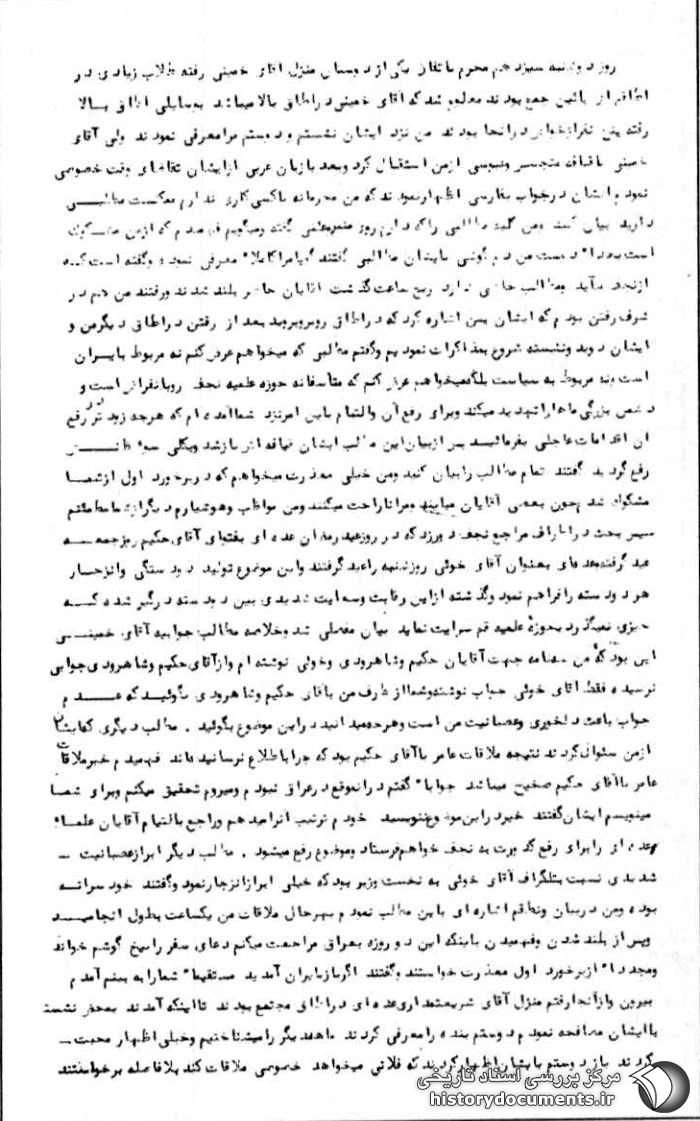 روز دوشنبه سیزدهم محرم باتفاق یکی از دوستان منزل آقای خمینی رفته طلاب زیادی در
اطاقهای پائین جمع بودند معلوم شد که آقای خمینی در اطاق بالا میباشد بوسایلی اطاق بالا
رفته پنج نفر از خواص در آنجا بودند من نزد ایشان نشستم و دوستم مرا معرفی نمودند ولی آقای
خمینی با قیافه متجسس وعبوسی ازمن استقبال کرد وبعد بازبان عربی از ایشان تقاضای وقت خصوصی
نمود وایشان درجواب بفارسی اظهار نمودند که من محرمانه باکسی کاری ندارم
دارید بیان کنید ومن گفته مطالبی را که دارم روی گفته ومیگویم فهمیدم که ازمن مشکوک
است بعدا دوست من دم گوشی بایشان مطالبی گفتند گویا مرا کاملا معرفی نمود و گفته است که
از نجف میآید ومطالب خاصی دارد ربع ساعت گذشت آقایان حاضر بلند شدند ورفتند من هم در
شرف رفتن بودم که ایشان بمن اشاره کرد که دراطاق روبرو بروید بعد از رفتن دراطاق دیگر من و
ایشان دوبدو نشسته شروع بمذاکرات نمودیم وگفتم مطالبی که میخواهم عرض کنم نه مربوط بایران
است ونه مربوط به سیاست بلکه میخواهم عرض کنم که متأسفانه حوزه علمیه نجف روبانقراض است و
دشمن بزرگی ماها را تهدید میکند وبرای رفع آن والتیام باین امر نزد شما آمده ام که هرچه زودتر در رفع
آن اقدامات عاجلی بفرمائید پس از بیان این مطالب ایشان قیافه اش باز شد وبکلی سوء ظنش
رفع گردید گفتند تمام مطالب را بیان کنید ومن خیلی معذرت میخواهم که دربرخورد اول از شما
مشکوک شدم چون بعضی آقایان میآیند ومرا ناراحت میکنند ومن مواظب وهوشیارم دیگر از شما مطمئنم
سپس بحث در اطراف مراجع نجف دور زد که در روز عید رمضان عده ای بفتوای آقای حکیم روز جمعه
عید گرفته وعده ای بعنوان آقای خوئی روز شنبه را عید گرفتند واین موضوع تولید دودستگی وانزجار
هر دو دسته را فراهم نمود وگذشته از این رقابت وسعایت شدیدی بین دو دسته درگیر شده که
چیزی نمیگذرد بحوزه علمیه قم سرایت نماید بیان مفصلی شد وخلاصه مطالب جوابیه آقای خمینی
این بود که من سه نامه جهت آقایان حکیم وشاهرودی وخوئی نوشته ام واز آقای حکیم وشاهرودی جوابی
نرسیده فقط آقای خوئی جواب نوشته وشما از طرف من بآقای حکیم وشاهرودی بگوئید که عدم
جواب باعث دلخوری وعصبانیت من است وهرچه میدانید در این موضوع بگوئید . مطالب دیگری که ایشان
ازمن سئوال کردند نتیجه ملاقات عامر باآقای حکیم بود که چرا باطلاع نرسانیده اند فهمیدم خبر ملاقات
عامر باآقای حکیم صحیح میباشد جوابا گفتم درآنموقع درعراق نبودم ومیروم تحقیق میکنم وبرای شما
مینویسم ایشان گفتند خیر دراین موضوع ننویسید خودم ترتیب آنرا میدهم وراجع بالتیام آقایان علماء
عده ای را برای رفع کدورت به نجف خواهم فرستاد وموضوع رفع میشود . مطالب دیگر ابراز عصبانیت -
شدیدی نسبت بتلگراف آقای خوئی به نخست وزیر بود که خیلی ابراز انزجار نمود وگفتند خودسرانه
بوده ومن دربیان ونطقم اشاره ای باین مطالب نمودم بهرحال ملاقات من یکساعت بطول انجامید
وپس از بلند شدن وفهمیدن باینکه این دو روزه بعراق مراجعت میکنم دعای سفر را بیخ گوشم خواند
ومجددا از برخورد اول معذرت خواستند وگفتند اگر باز بایران آمدید مستقیما شما را به بینم آمدم
بیرون واز آنجا رفتم منزل آقای شریعتمداری عده ای دراطاق مجتمع بودند تا اینکه آمدند بمحض نشستن
باایشان مصافحه نمودم دوستم بنده را معرفی کردند ماهمدیگر را میشناختیم وخیلی اظهار محبت -
کردند باز دوستم بایشان اظهار کردند که فلانی میخواهد خصوصی ملاقات کند بلافاصله برخواستند
مرکز بررسی اسناد تاریخی
historydocuments.ir